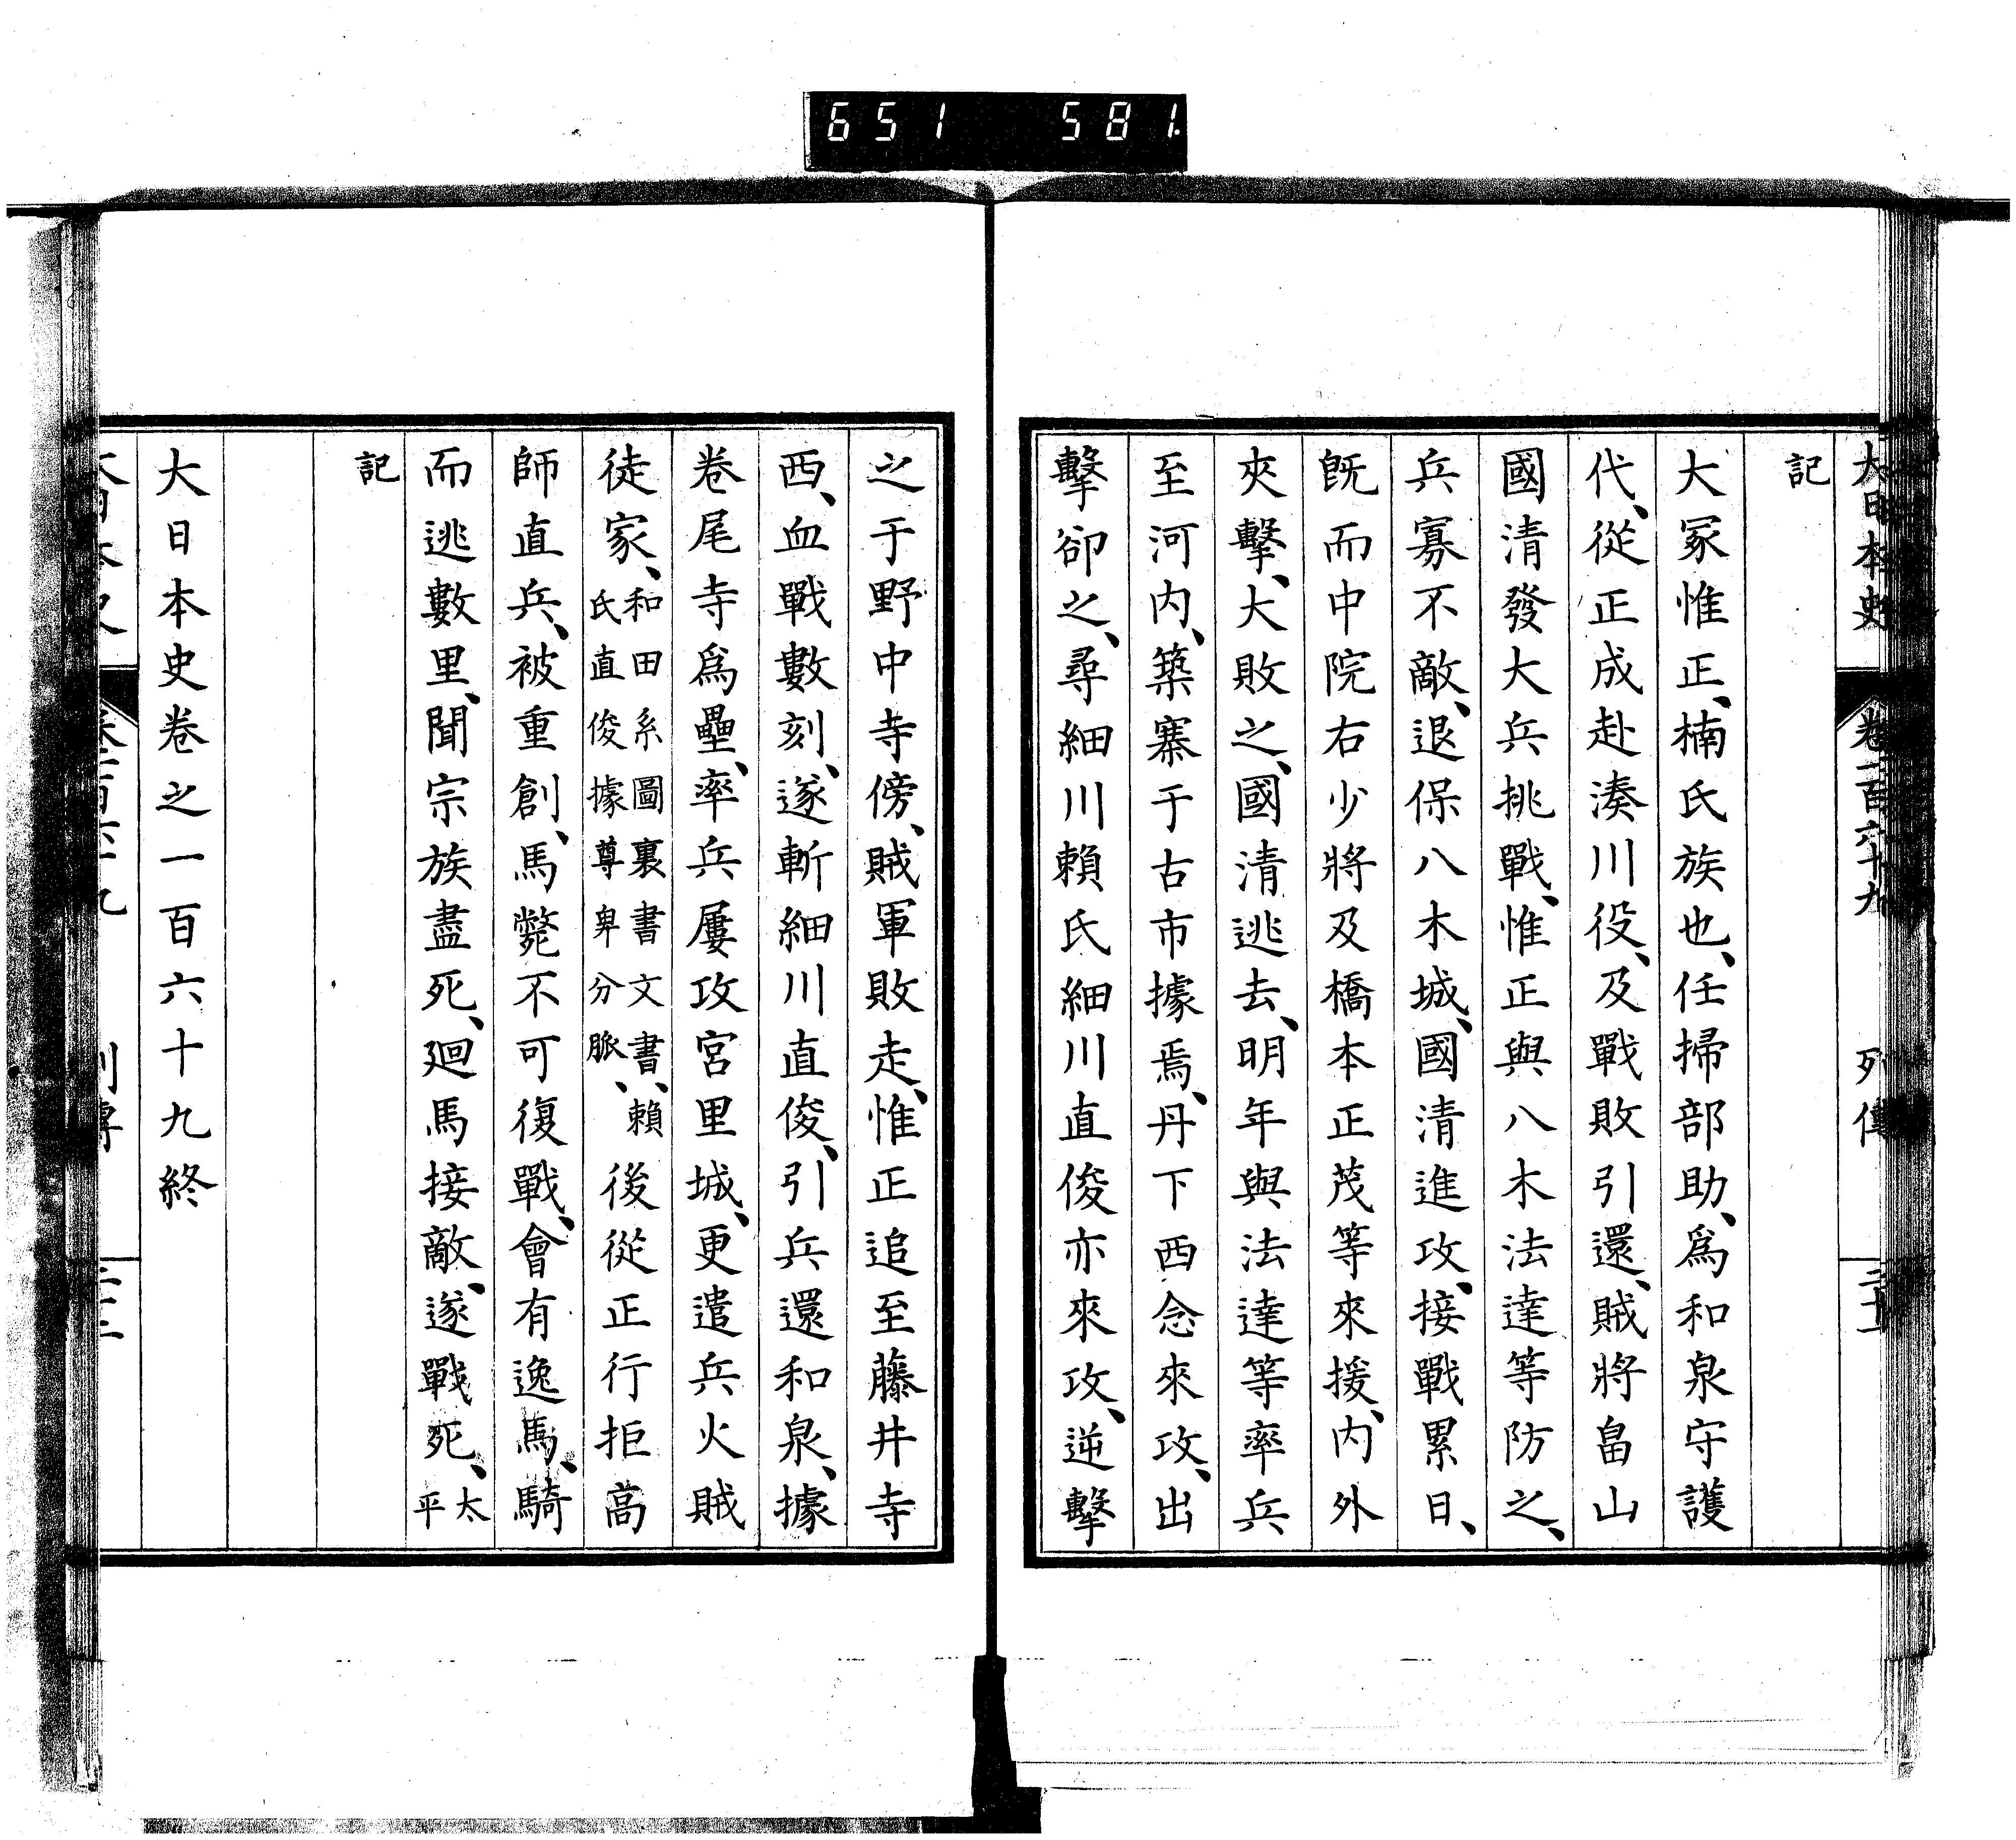 651 581
大日本史 卷一百六十九 列傳
記
大冢惟正、楠氏族也、任掃部助、爲和泉守護
代、從正成赴湊川役、及戰敗引還、賊將畠山
國清發大兵挑戰、惟正與八木法達等防之、
兵寡不敵、退保八木城、國清進攻、接戰累日、
旣而中院右少將及橋本正茂等來援、內外
夾擊、大敗之、國清逃去、明年與法達等率兵
至河內、築寨于古市據焉、丹下西念來攻、出
擊卻之、尋細川賴氏細川直俊亦來攻、逆擊
之于野中寺傍、賊軍敗走、惟正追至藤井寺
西、血戰數刻、遂斬細川直俊、引兵還和泉、據
卷尾寺爲壘、率兵屢攻宮里城、更遣兵火賊
徒家、和田系圖裏書文書、賴氏直俊據尊卑分脈、後從正行拒高
師直兵、被重創、馬斃不可復戰、會有逸馬、騎
而逃數里、聞宗族盡死、廻馬接敵、遂戰死、太平
記
大日本史卷之一百六十九終